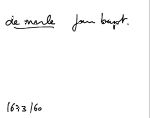 de marle Jan bapt.
1633/60